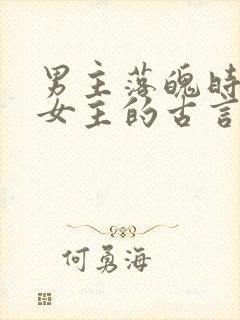 男主落魄时
女主的古言
何勇海